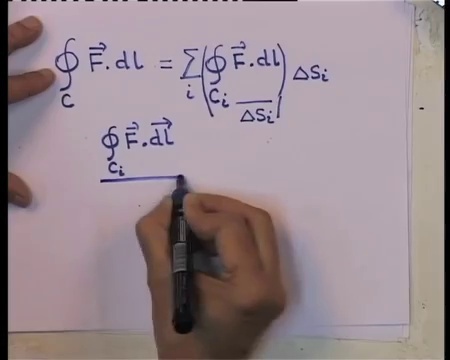 ∮_C F⃗ . dl = ∑_i (∮_{C_i} F⃗ . dl / ΔS_i) ΔS_i
∮_{C_i} F⃗ . dl⃗